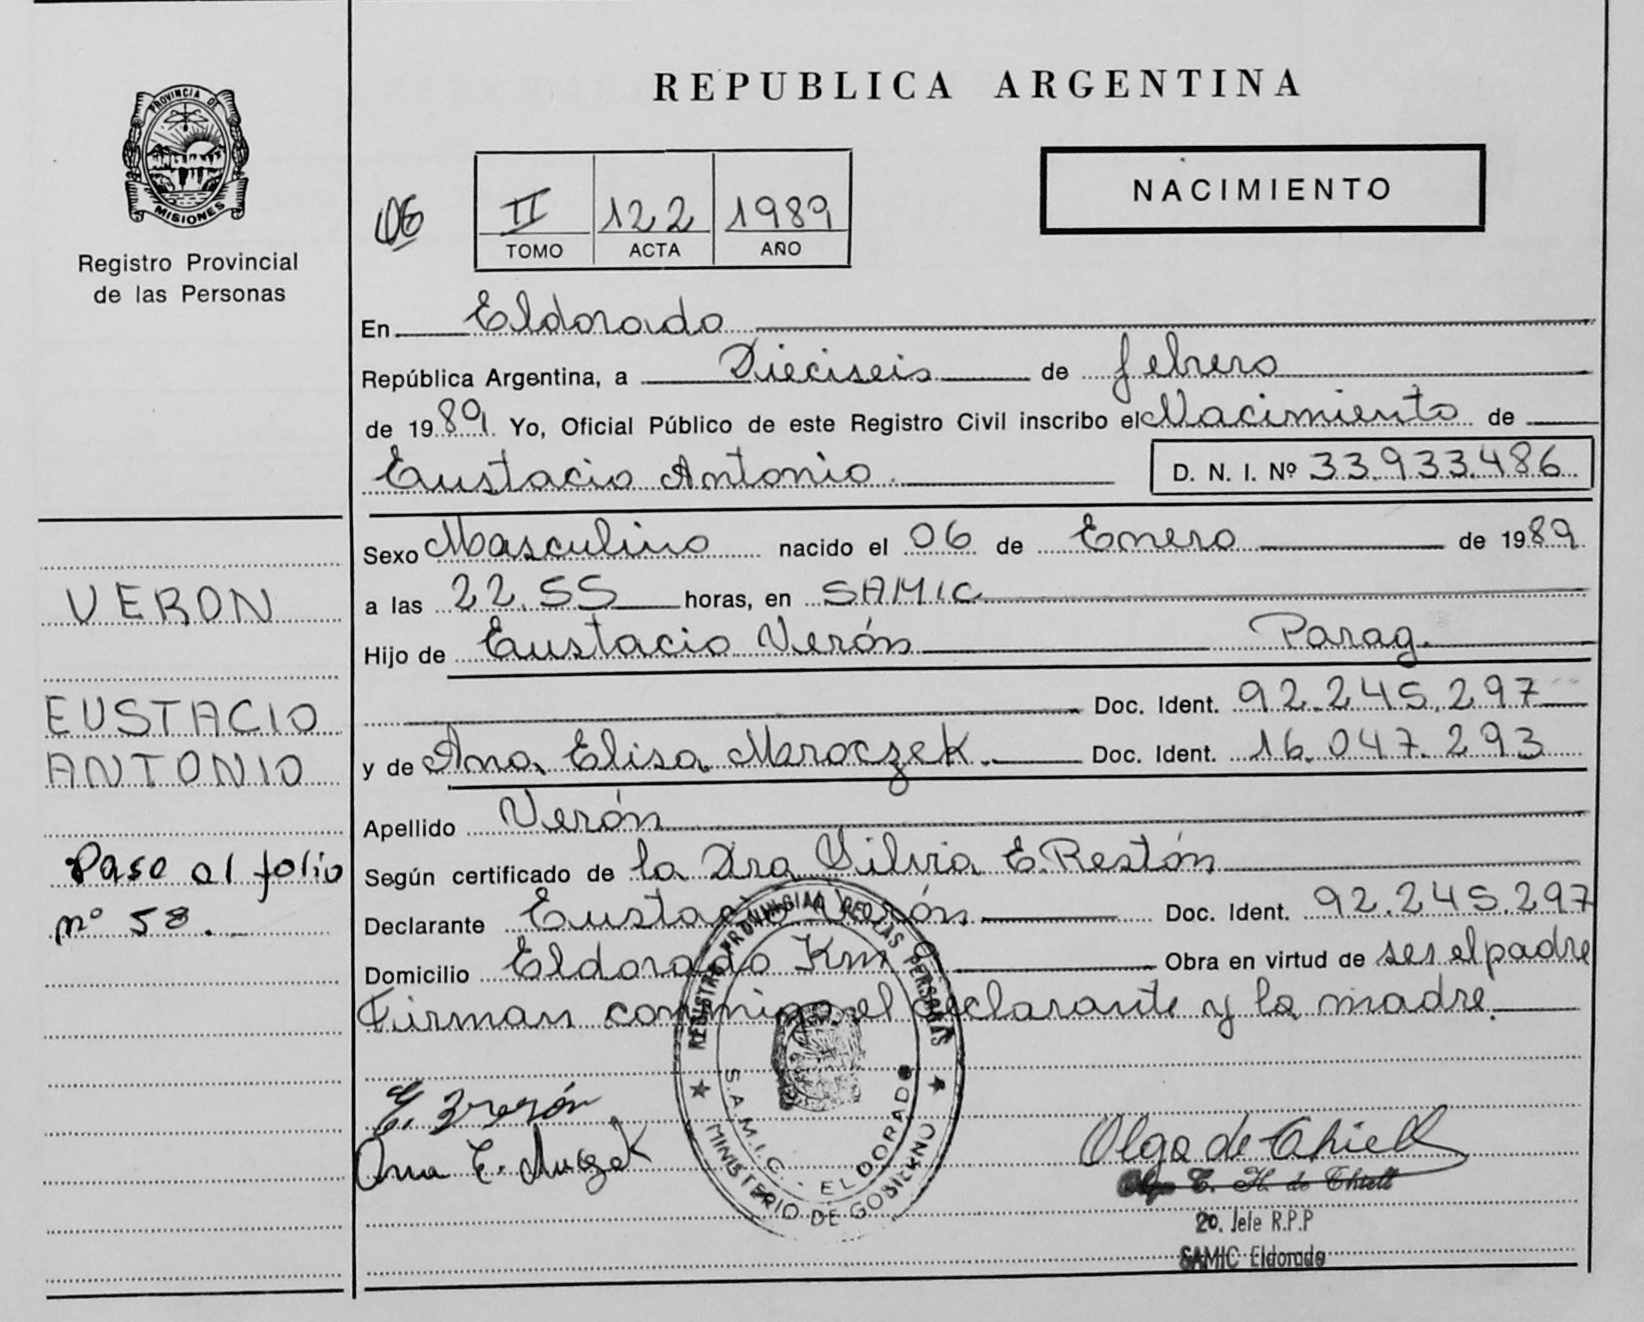 PROVINCIA DE
MISIONES
Registro Provincial
de las Personas
VERON
EUSTACIO
ANTONIO
Pase al folio
nº 58.
REPUBLICA ARGENTINA
II 122 1989
TOMO ACTA AÑO
NACIMIENTO
En Eldorado
República Argentina, a Dieciseis de febrero
de 1989 Yo, Oficial Público de este Registro Civil inscribo el Nacimiento de
Eustacio Antonio D. N. I. Nº 33.933.486
Sexo Masculino nacido el 06 de Enero de 1989
a las 22.55 horas, en SAMIC
Hijo de Eustacio Verón Parag.
Doc. Ident. 92.245.297
y de Ana Elisa Mroczek. Doc. Ident. 16.047.293
Apellido Verón
Según certificado de la Dra Silvia E. Restón
Declarante Eustacio Verón Doc. Ident. 92.245.297
Domicilio Eldorado Km 9 Obra en virtud de ser el padre
Firman conmigo el declarante y la madre.
REGISTRO PROVINCIAL DE LAS PERSONAS
S.A.M.I.C. - ELDORADO
MINISTERIO DE GOBIERNO
Olga de Thiell
Olga T. H. de Thiell
2o. Jefe R.P.P
SAMIC Eldorado